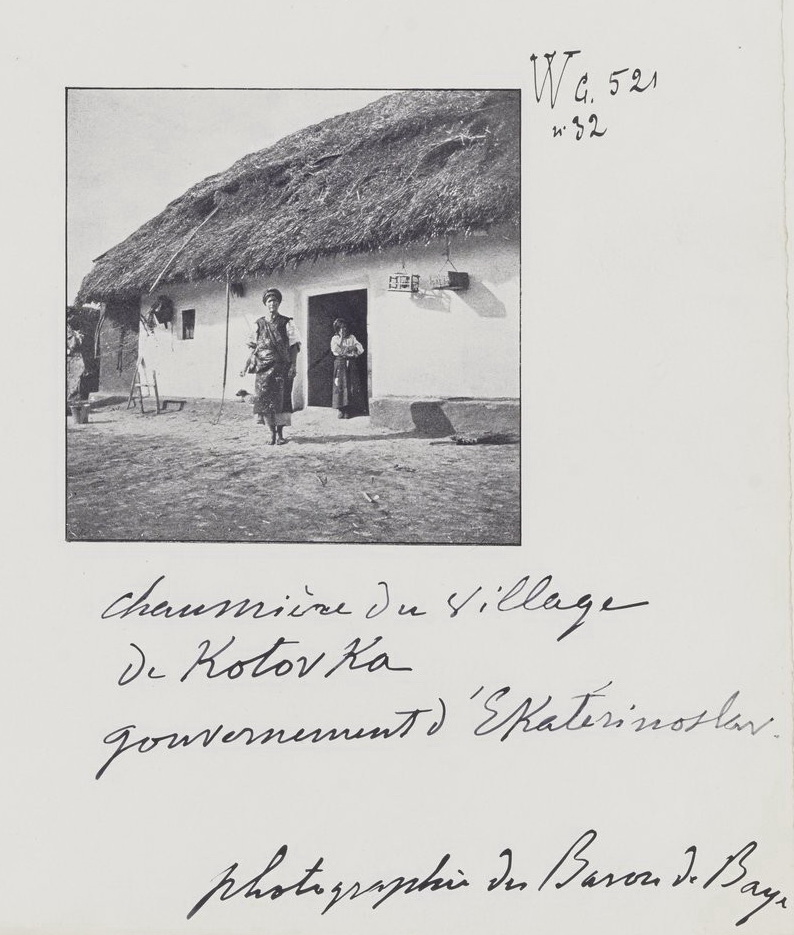 WG. 521
n° 32
chaumière du village
de Kotovka
gouvernement d'Ekatérinoslav.
photographie du Baron de Baye